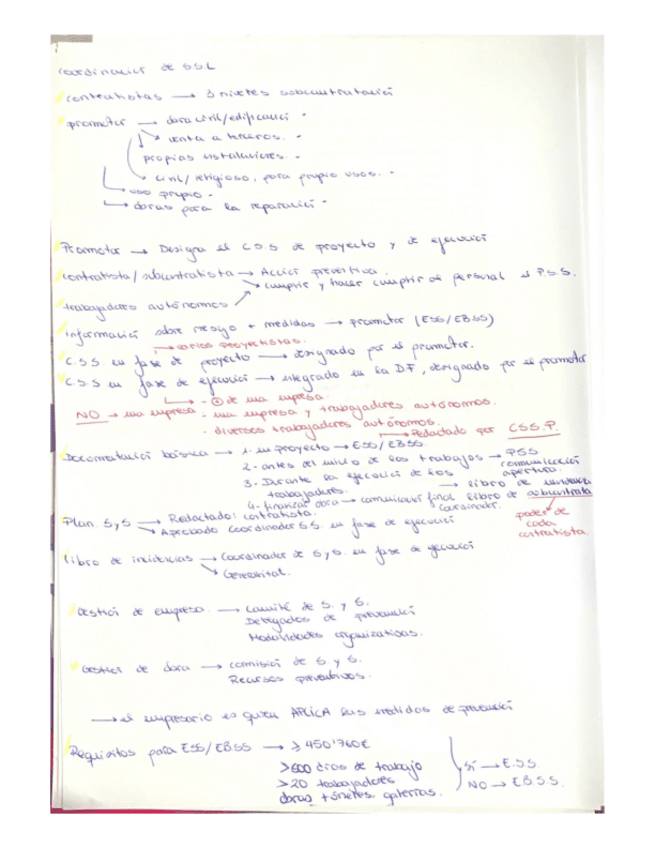 Coordinació de SSL
contratistas → 3 niveles subcontratació
promotor → obra civil/edificació -
→ venta a terceros. -
propias instalaciones. -
civil/religioso, para propio usos. -
→ uso propio -
→ obras para la reparació -
Promotor → Designa el C.S.S de proyecto y de ejecució
contratista/subcontratista → Acció preventiva.
→ cumplir y hacer cumplir al personal el P.S.S.
trabajadores autónomos
Informació sobre riesgo + medidas → promotor (ESS/EBSS)
→ varios proyectistas.
C.S.S en fase de proyecto → designado por el promotor.
C.S.S en fase de ejecució → integrado en la DF, designado por el promotor
→ - ⊕ de una empresa.
NO → una empresa - una empresa y trabajadores autónomos.
- diversos trabajadores autónomos.
→ Redactado por CSS.P.
Documentació básica → 1. en proyecto → ESS/EBSS
2- antes del inicio de los trabajos → PSS
comunicació apertura.
3- Durante la ejecució de los trabajadores. → libro de
4- finalizar obra → comunicació final libro de subcontrata
coordinador.
poder de cada contratista.
Plan SyS → Redactado: contratista.
→ Aprobado Coordinador S.S. en fase de ejecució
libro de incidencias → Coordinador de S y S. en fase de ejecució
→ Generalitat.
Gestió de empresa. → Comité de S. y S.
Delegados de prevenció
Modalidades organizativas.
Gestió de obra → comisió de S y S.
Recursos preventivos.
→ el empresario es quien APLICA las medidas de prevenció
Requisitos para ESS/EBSS → ≥ 450'760€
>500 días de trabajo
>20 trabajadores
obras túneles, galerías.
SÍ → E.S.S.
NO → E.B.S.S.